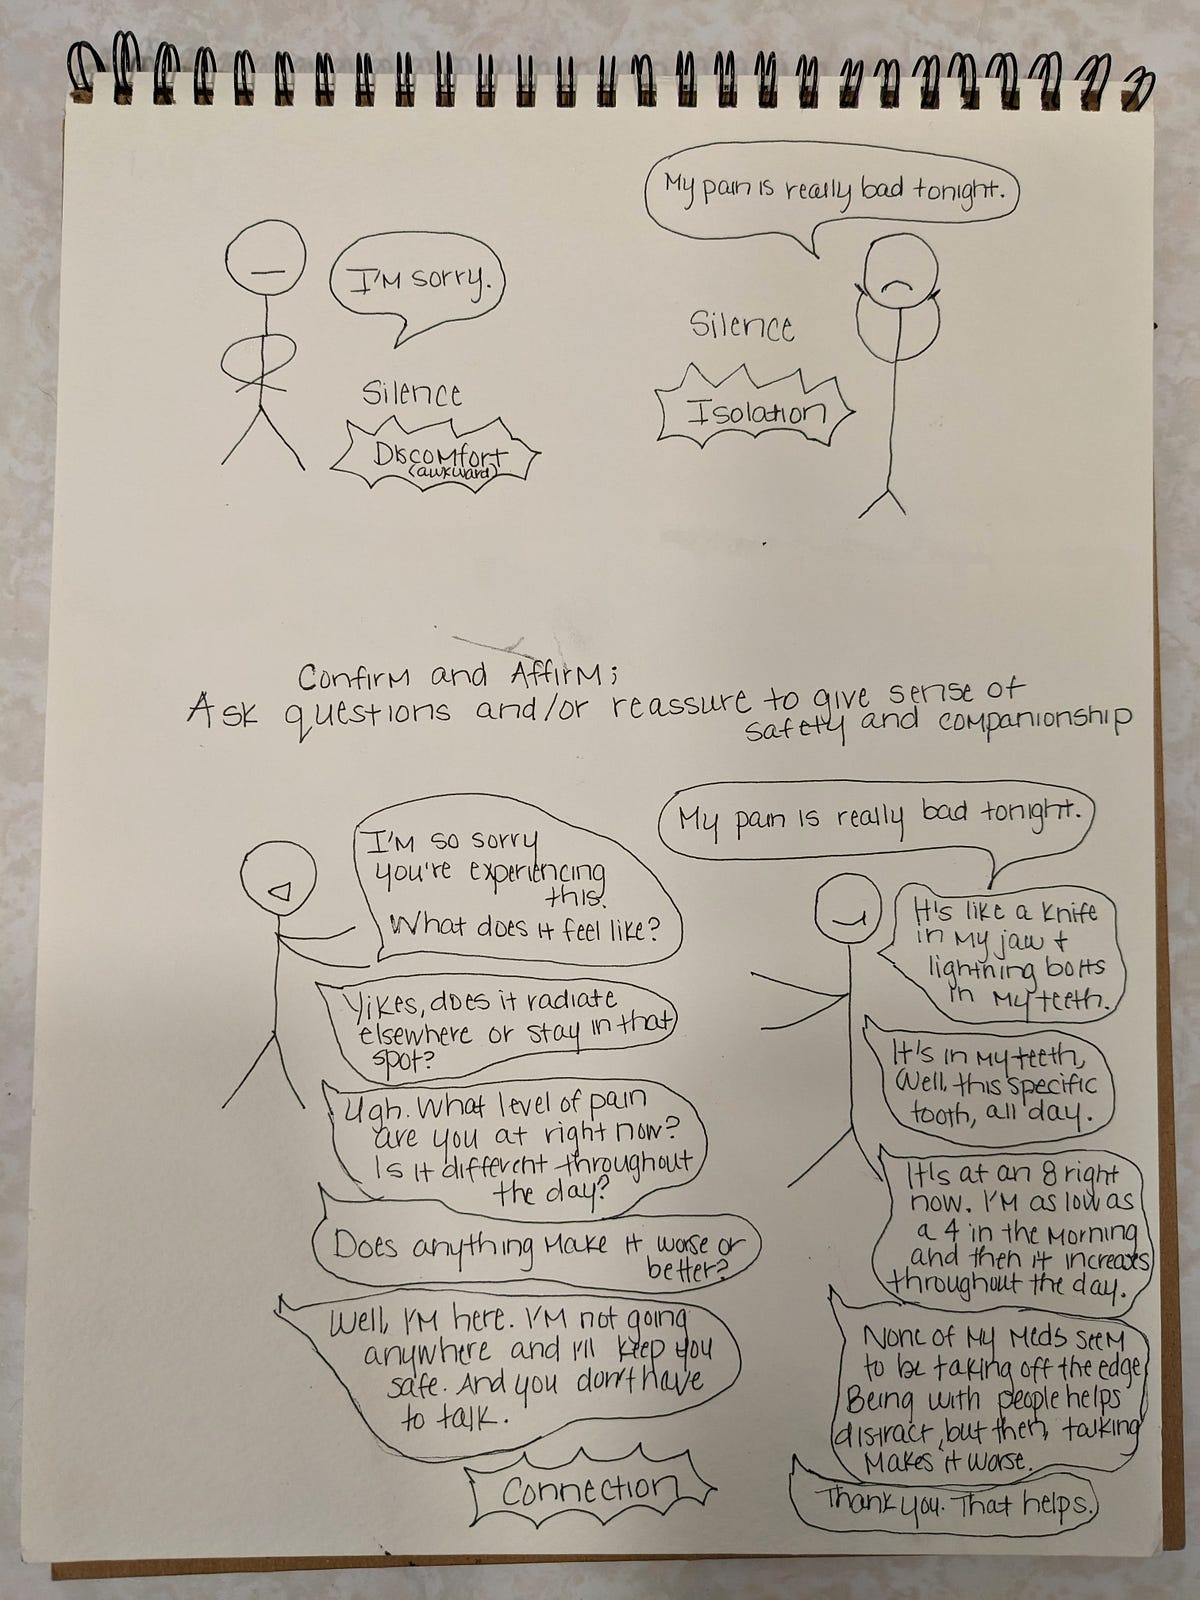 My pain is really bad tonight.
I'm sorry.
Silence
Isolation
Silence
Discomfort
(awkward)
Confirm and Affirm;
Ask questions and/or reassure to give sense of
safety and companionship
My pain is really bad tonight.
I'm so sorry
you're experiencing
this.
What does it feel like?
It's like a knife
in my jaw +
lightning bolts
in my teeth.
Yikes, does it radiate
elsewhere or stay in that
spot?
It's in my teeth,
Well, this specific
tooth, all day.
Ugh. What level of pain
are you at right now?
Is it different throughout
the day?
It's at an 8 right
now. I'm as low as
a 4 in the morning
and then it increases
throughout the day.
Does anything make it worse or
better?
None of my meds seem
to be taking off the edge
Being with people helps
distract, but then, talking
makes it worse.
Well, I'm here. I'm not going
anywhere and I'll keep you
safe. And you don't have
to talk.
Thank you. That helps.
Connection